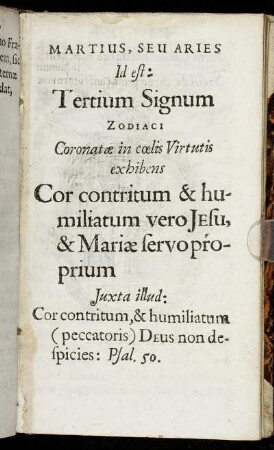 no Fra-
em, sic
ternæ
dat,
MARTIUS, SEU ARIES
Id est:
Tertium Signum
ZODIACI
Coronatæ in cœlis Virtutis
exhibens
Cor contritum & hu-
miliatum vero JESU,
& Mariæ servo pró-
prium
Juxta illud:
Cor contritum, & humiliatum
(peccatoris) DEUS non de-
spicies: Psal. 50.